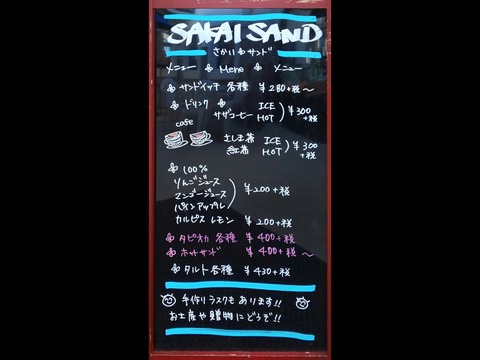 SAKAI SAND
さかい サンド
メニュー Mene メニュー
サンドイッチ 各種 ¥280+税〜
ドリンク
cafe サザコーヒー ICE HOT ¥300+税
さしま茶 ICE
紅茶 HOT ¥300+税
100%
りんごジュース
マンゴージュース ¥200+税
パインアップル
カルピス レモン ¥200+税
タピオカ 各種 ¥400+税
ホットサンド ¥400+税〜
タルト 各種 ¥430+税
手作りラスクも あります!!
お土産や贈物にどうぞ!!